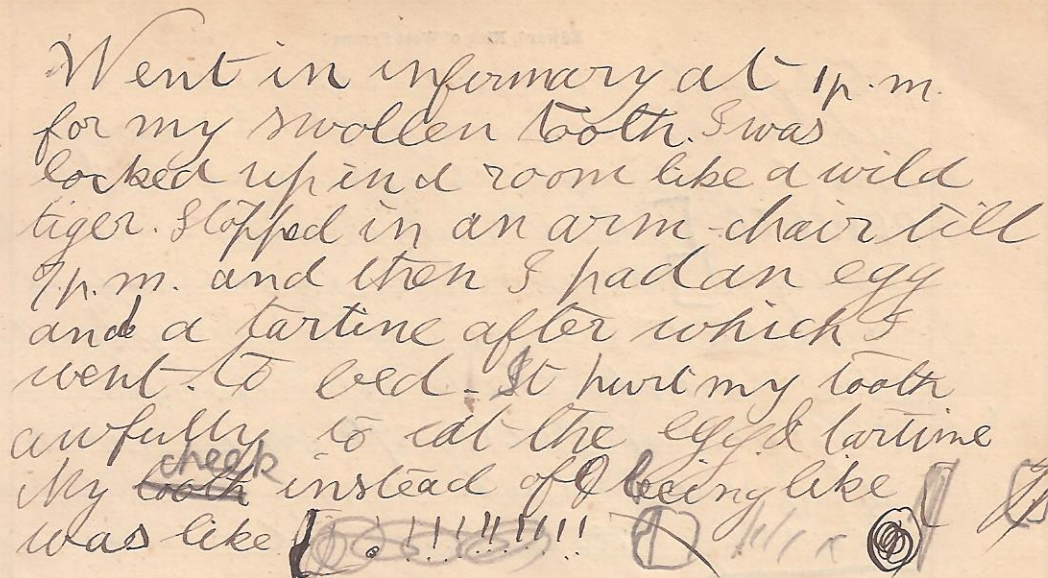 Went in infermary at 1 p.m.
for my swollen tooth. I was
locked up in a room like a wild
tiger. Stopped in an arm-chair till
7 p.m. and then I had an egg
and a tartine after which I
went to bed. It hurt my tooth
awfully to eat the egg & tartine
My cheek tooth instead of being like
was like !!!!!!!!!